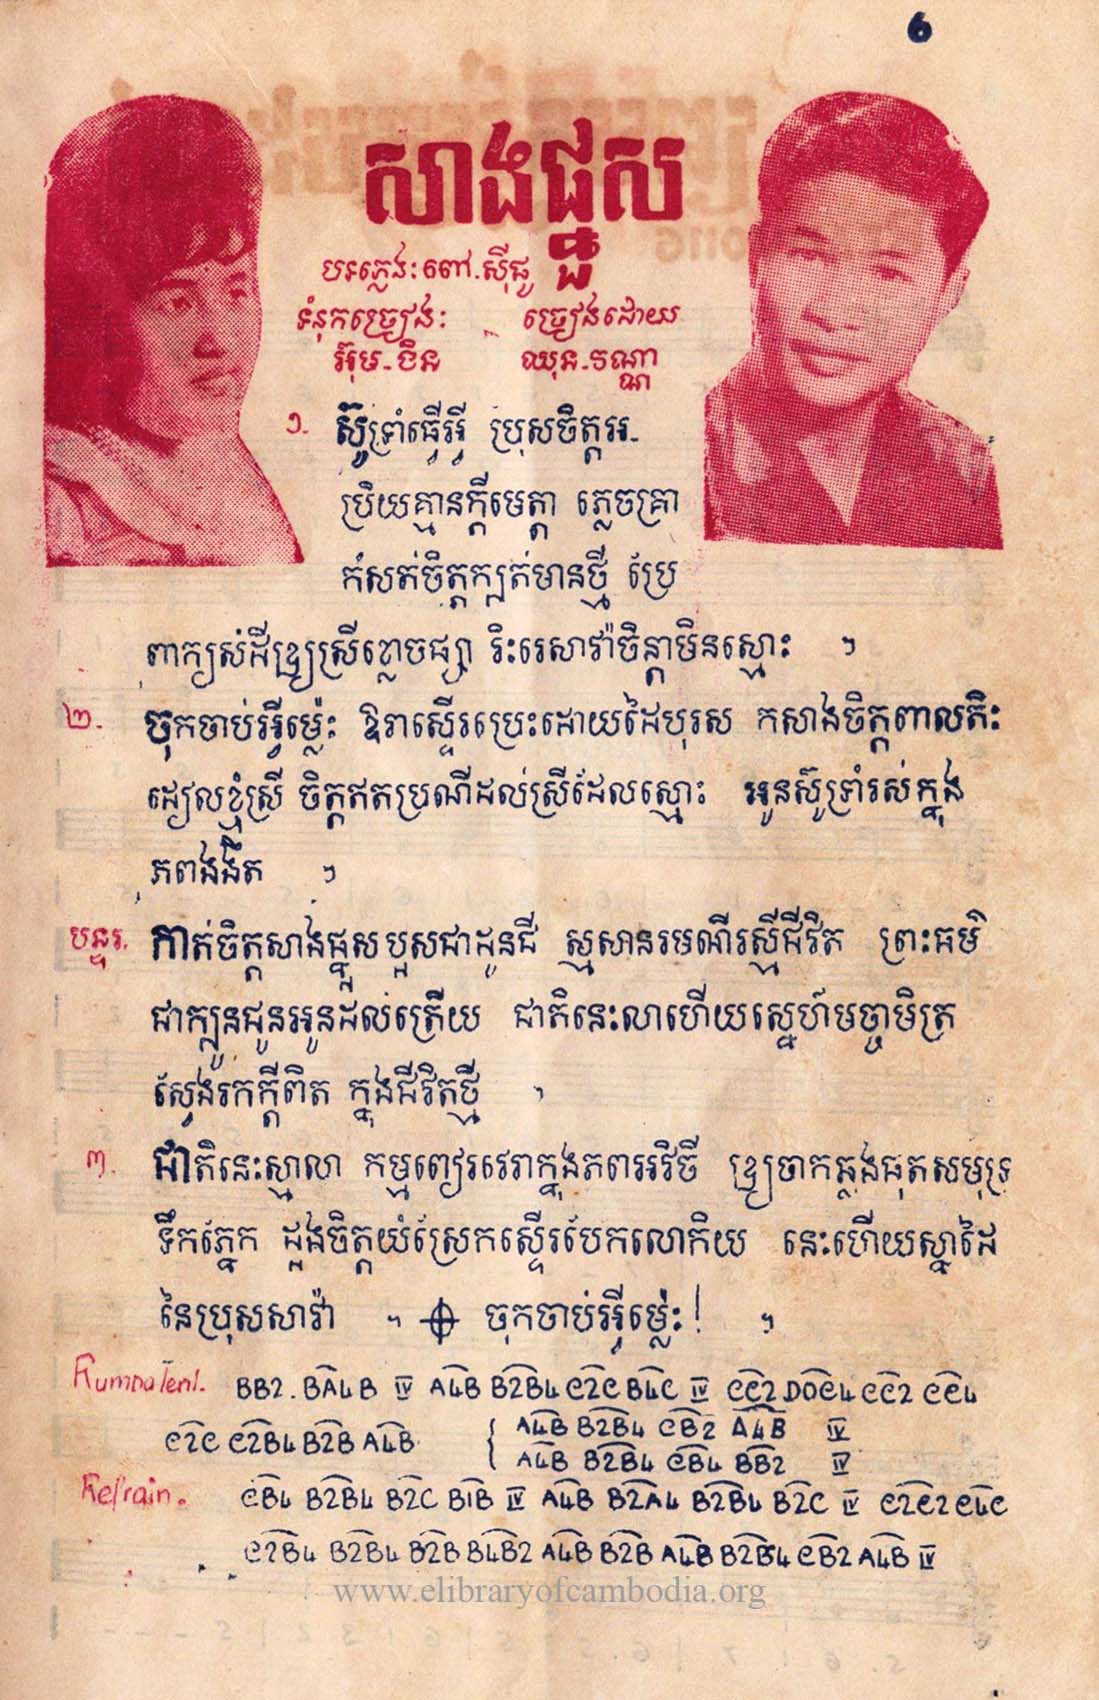 6
សាងផ្នួស
បរភ្លេង: ពៅ.ស៊ីផូ
ទំនុកច្រៀង:
ច្រៀងដោយ
អ៊ុម-ជិន
ឈុន-វណ្ណា
១. ស៊ូទ្រាំធ្វើអ្វី ប្រុសចិត្តអ-
ប្រិយគ្មានក្ដីមេត្តា ភ្លេចគ្រា
កំសត់ចិត្តក្បត់មានថ្មី ប្រែ
ពាក្យសំដីឱ្យស្រីខ្លោចផ្សា រិះរេសាវ៉ាចិន្តាមិនស្មោះ ។
២. ចុកចាប់អ្វីម្ល៉េះ ឱរាស្ទើរប្រេះដោយដៃបុរស កសាងចិត្តពាលតិះ
ដៀលខ្ញុំស្រី ចិត្តឥតប្រណីដល់ស្រីដែលស្មោះ អូនស៊ូទ្រាំរស់ក្នុង
ភពងងឹត ។
បន្ទរ. កាត់ចិត្តសាងផ្នួសបួសជាដូនជី ស្មសានរមណីរស្មីជីវិត ព្រះធម៌
ជាក្បួនជូនអូនដល់ត្រើយ ជាតិនេះលាហើយស្នេហ៍មច្ចាមិត្រ
ស្វែងរកក្ដីពិត ក្នុងជីវិតថ្មី ។
៣. ជាតិនេះស្មាលា កម្មពៀរវេរាក្នុងភពអវិចី ឱ្យចាកឆ្លងផុតសមុទ្រ
ទឹកភ្នែក ដួងចិត្តយំស្រែកស្ទើរបែកលោកិយ នេះហើយស្នាដៃ
នៃប្រុសសាវ៉ា ។ ចុកចាប់អ្វីម្ល៉េះ! ។
BB2. BA4 B IV A4B B2B4 C2C B4C IV CC2 DOC4 CC2 CC4
C2C C2B4 B2B A4B { A4B B2B4 CB2 A4B IV
A4B B2B4 CB4 BB2 IV
Refrain. CB4 B2B4 B2C B1B IV A4B B2A4 B2B4 B2C IV C2C2 C4C
C2B4 B2B4 B2B B4B2 A4B B2B A4B B2B4 CB2 A4B IV
www.elibraryofcambodia.org